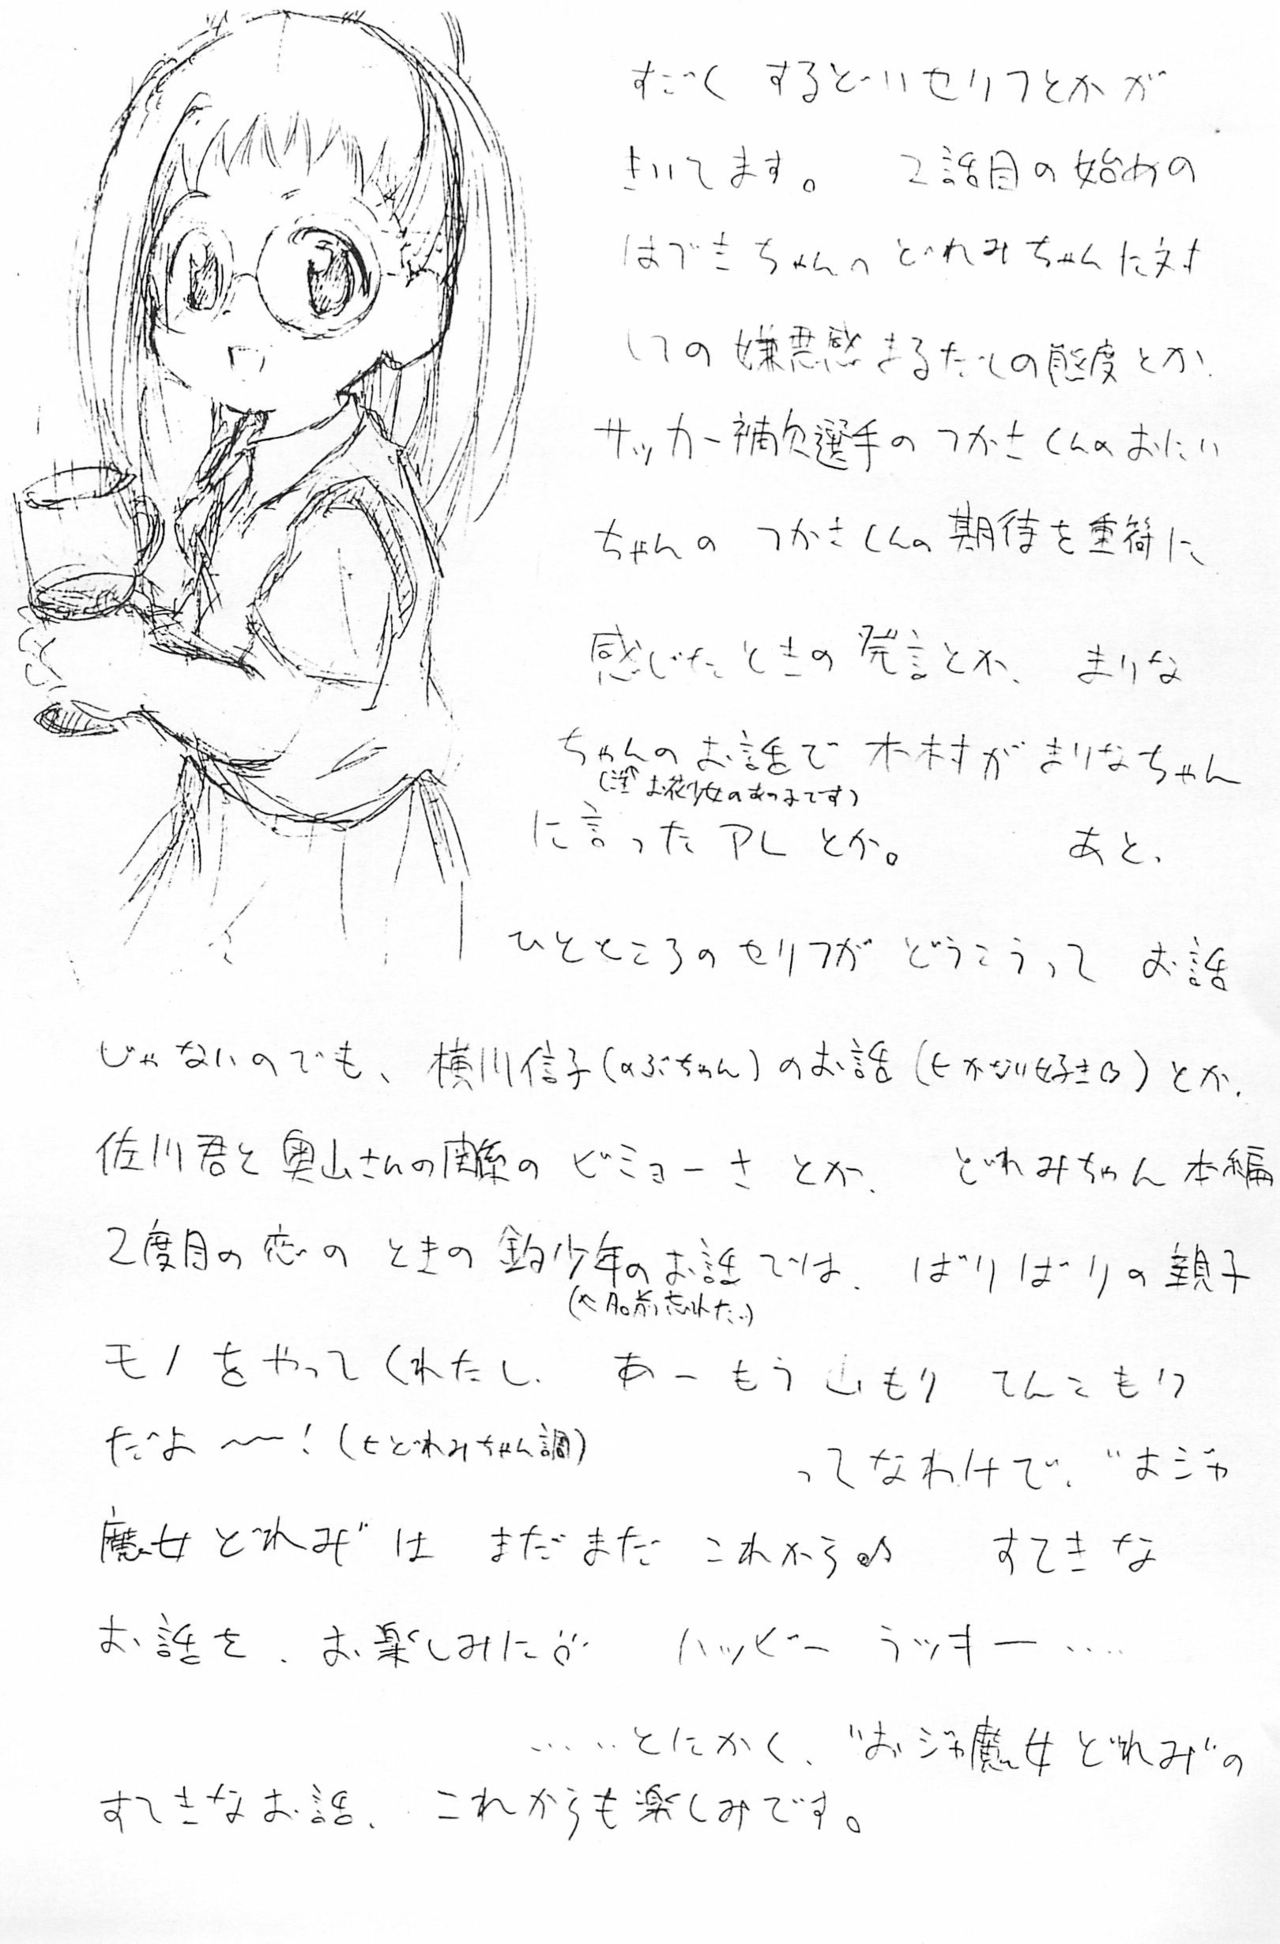 すごく するどいセリフとかが
きいてます。 2話目の始めの
はづきちゃんの どれみちゃんに対
しての 嫌悪感まるだしの態度とか、
サッカー補欠選手の つかさくんのおにい
ちゃんの つかさくんの期待を重荷に
感じたときの 発言とか、 まりな
ちゃんのお話で 木村がまりなちゃん
(注 お花少女のあの子です)
に言ったアレ とか。 あと、
ひとところのセリフが どうこうって お話
じゃないのでも、 横川信子(のぶちゃん)のお話(←かなり好き♡)とか、
佐川君と奥山さんの関係の ビミョーさ とか、 どれみちゃん本編
2度目の恋の ときの 釣少年のお話では、 ばりばりの親子
(← 名前忘れた…)
モノをやってくれたし、 あーもう 山もり てんこもり
だよ〜〜!(←どれみちゃん調)
ってなわけで、"おジャ
魔女どれみ"は まだまだ これから♪ すてきな
お話を、お楽しみに♡ ハッピー ラッキー‥‥
‥‥とにかく、"おジャ魔女どれみ"の
すてきなお話、 これからも楽しみです。